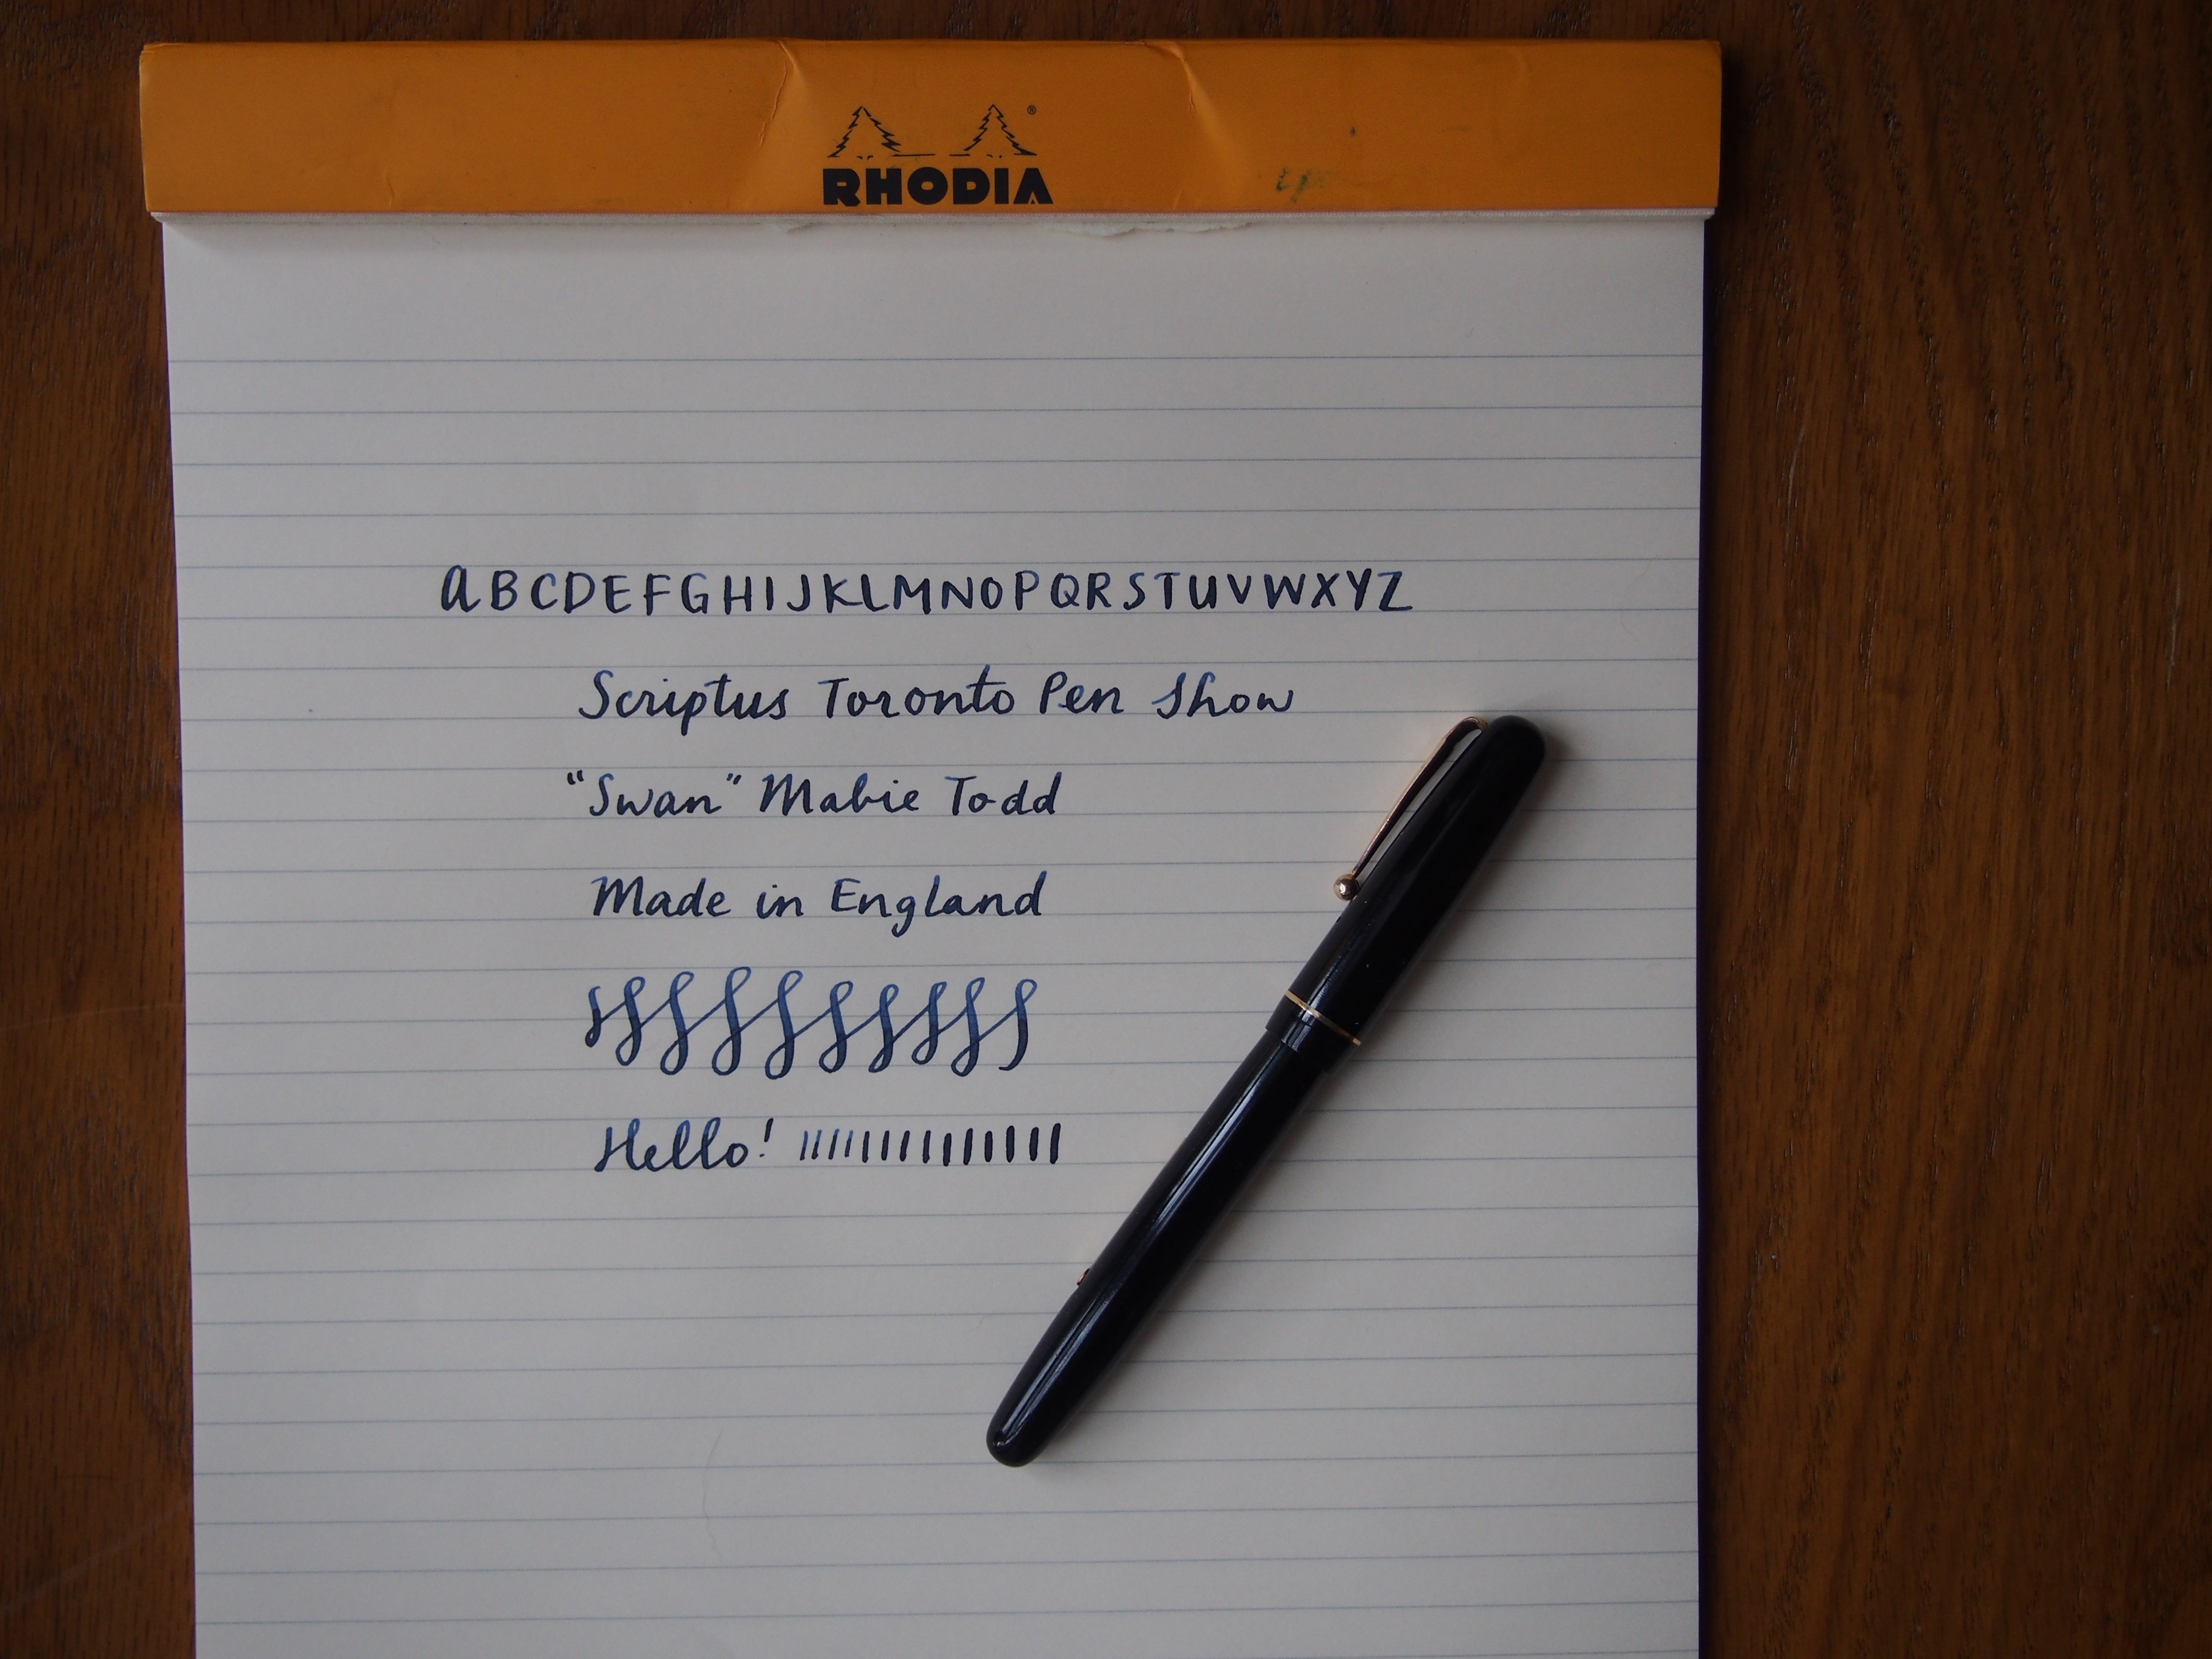 RHODIA
ABCDEFGHIJKLMNOPQRSTUVWXYZ
Scriptus Toronto Pen Show
"Swan" Mabie Todd
Made in England
Hello!